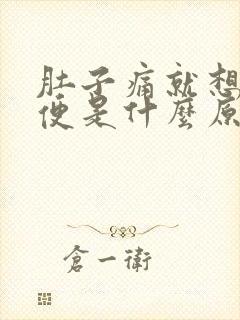 肚子痛就想
便是什麼原
倉一衛